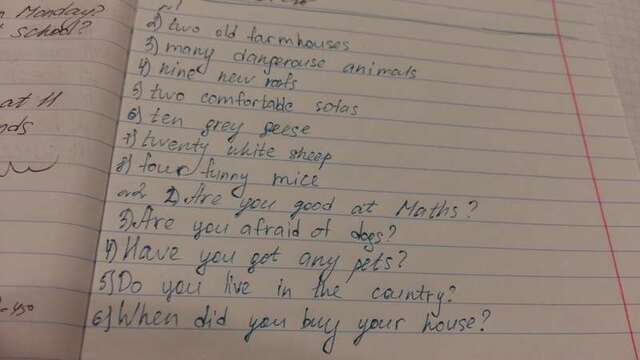 Monday
school?
at 11
2) two old farmhouses
3) many dangerouse animals
4) nine new
5) two comfortable sofas
6) ten grey geese
7) twenty white sheep
8) four funny mice
2. Are you good at Maths?
3) Are you afraid of dogs?
4) Have you got any pets?
5) Do you live in the country?
6) When did you buy your house?